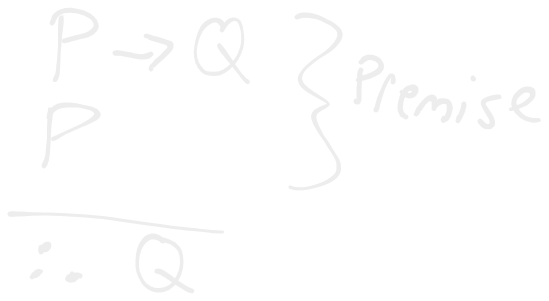 P → Q
P
} Premise
∴ Q